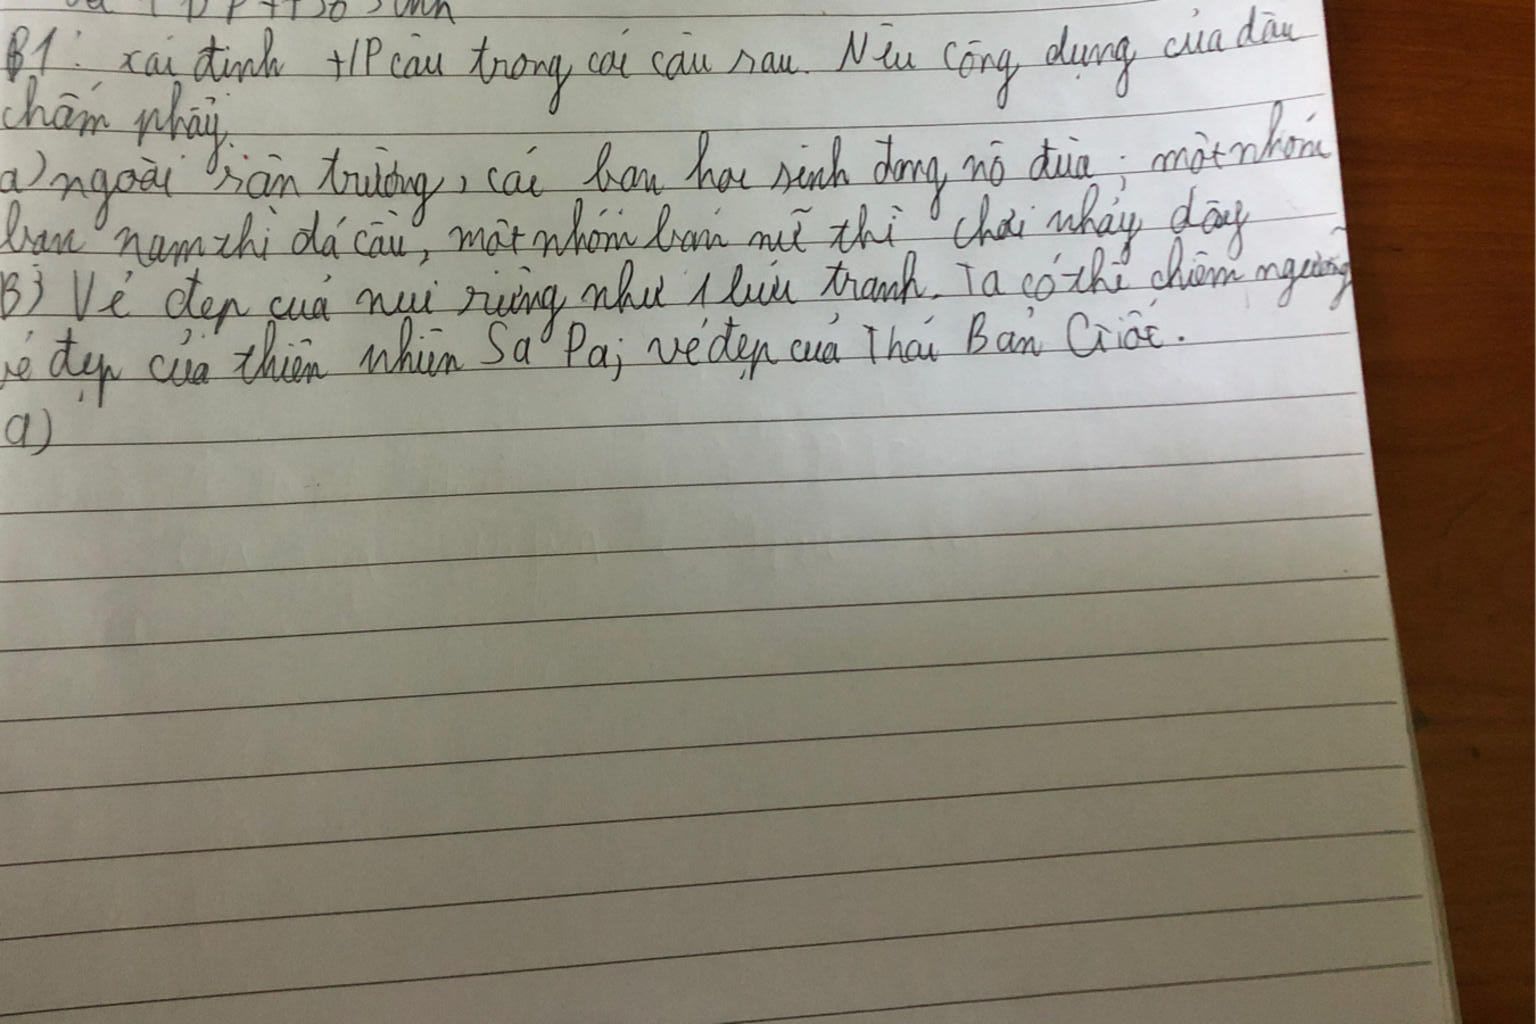 B1: xác định TP câu trong các câu sau. Nêu công dụng của dấu
chấm phẩy.
a) ngoài sân trường, các bạn học sinh đang nô đùa; một nhóm
bạn nam thì đá cầu, một nhóm bạn nữ thì chơi nhảy dây
B) Vẻ đẹp của núi rừng như 1 bức tranh. Ta có thể chiêm ngưỡng
vẻ đẹp của thiên nhiên Sa Pa; vẻ đẹp của Thác Bản Giốc.
a)